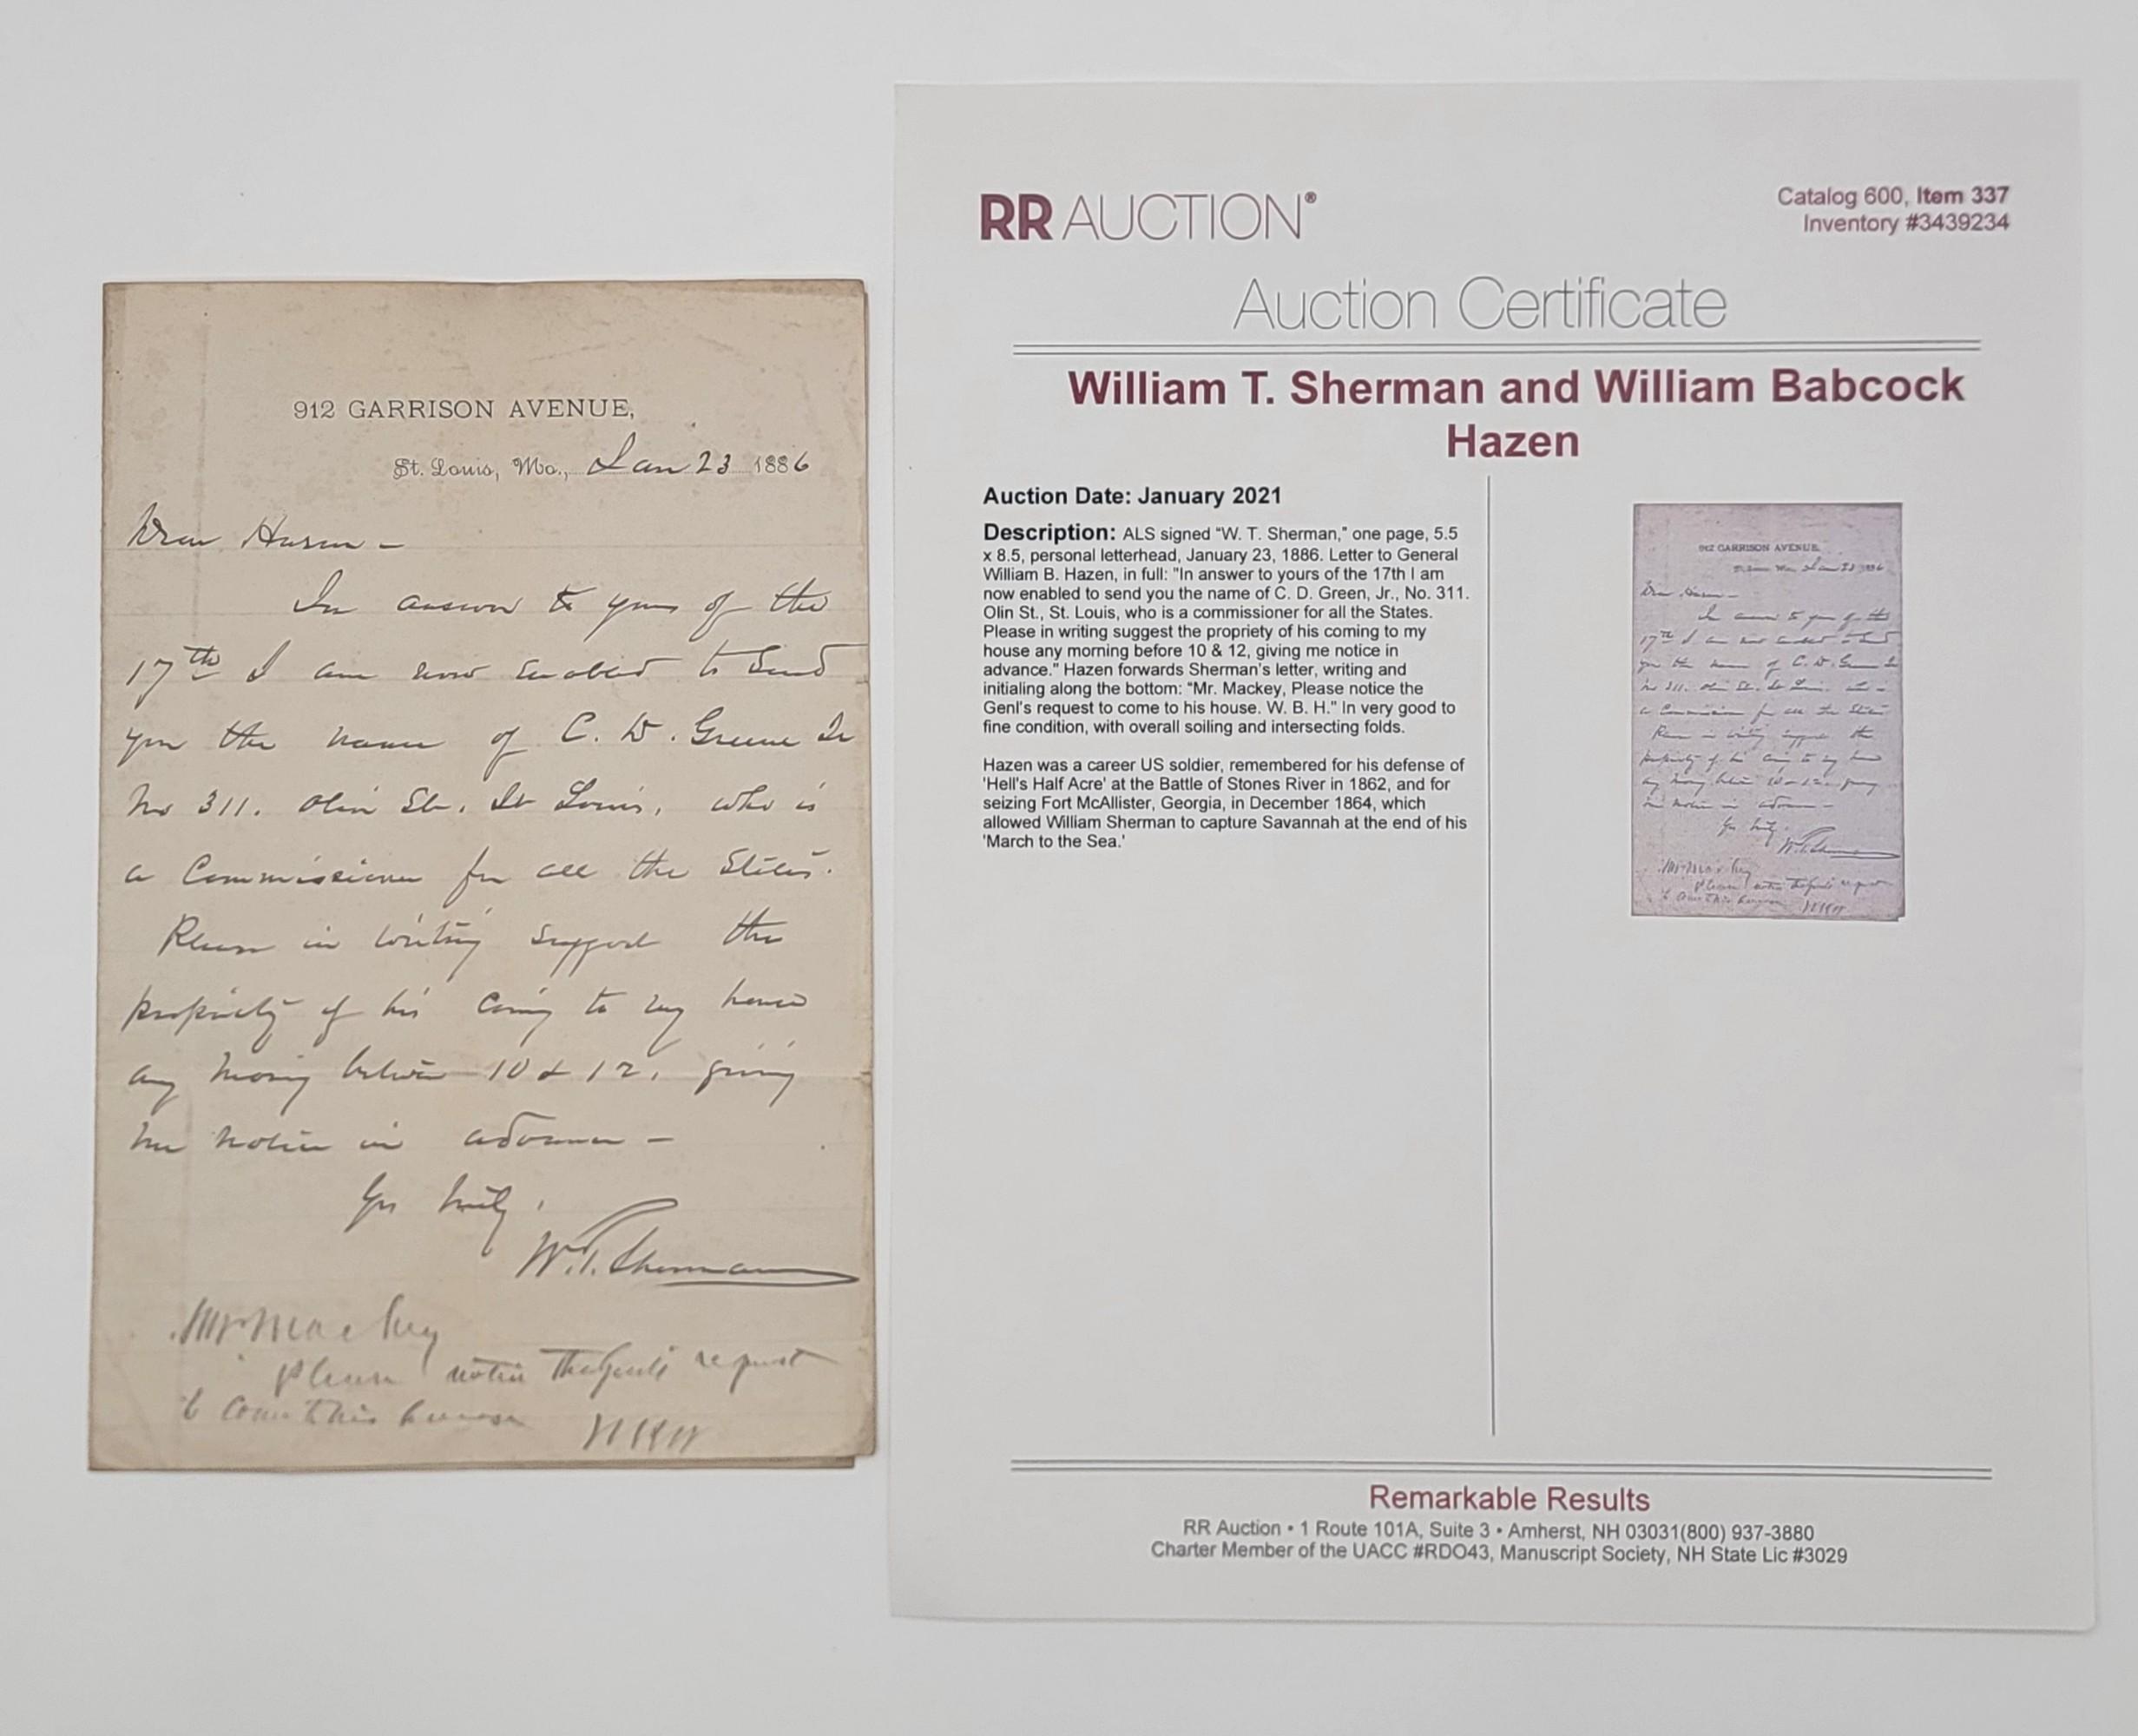 912 GARRISON AVENUE,
St. Louis, Mo., Jan 23 1886
Dear Hazen -
In answer to yours of the
17th I am now enabled to send
you the name of C. D. Greene Jr
No 311. Olive St. St Louis, who is
a Commissioner for all the States.
Please in writing suggest the
propriety of his coming to my house
any morning between 10 & 12, giving
me notice in advance -
Yrs truly,
W. T. Sherman
Mr Mackey
Please notice the Genls request
to come to his house WBH
RR AUCTION®
Catalog 600, Item 337
Inventory #3439234
Auction Certificate
William T. Sherman and William Babcock
Hazen
Auction Date: January 2021
Description: ALS signed “W. T. Sherman,” one page, 5.5
x 8.5, personal letterhead, January 23, 1886. Letter to General
William B. Hazen, in full: "In answer to yours of the 17th I am
now enabled to send you the name of C. D. Green, Jr., No. 311.
Olin St., St. Louis, who is a commissioner for all the States.
Please in writing suggest the propriety of his coming to my
house any morning before 10 & 12, giving me notice in
advance." Hazen forwards Sherman's letter, writing and
initialing along the bottom: “Mr. Mackey, Please notice the
Genl's request to come to his house. W. B. H.” In very good to
fine condition, with overall soiling and intersecting folds.
Hazen was a career US soldier, remembered for his defense of
'Hell's Half Acre' at the Battle of Stones River in 1862, and for
seizing Fort McAllister, Georgia, in December 1864, which
allowed William Sherman to capture Savannah at the end of his
'March to the Sea.'
912 GARRISON AVENUE,
St. Louis, Mo., Jan 23 1886
Dear Hazen -
In answer to yours of the
17th I am now enabled to send
you the name of C. D. Greene Jr
No 311. Olive St. St Louis, who is
a Commissioner for all the States
Please in writing suggest the
propriety of his coming to my house
any morning between 10 & 12, giving
me notice in advance -
Yrs truly,
W. T. Sherman
Mr Mackey
Please notice the Genls request
to come to his house WBH
Remarkable Results
RR Auction • 1 Route 101A, Suite 3 • Amherst, NH 03031(800) 937-3880
Charter Member of the UACC #RDO43, Manuscript Society, NH State Lic #3029